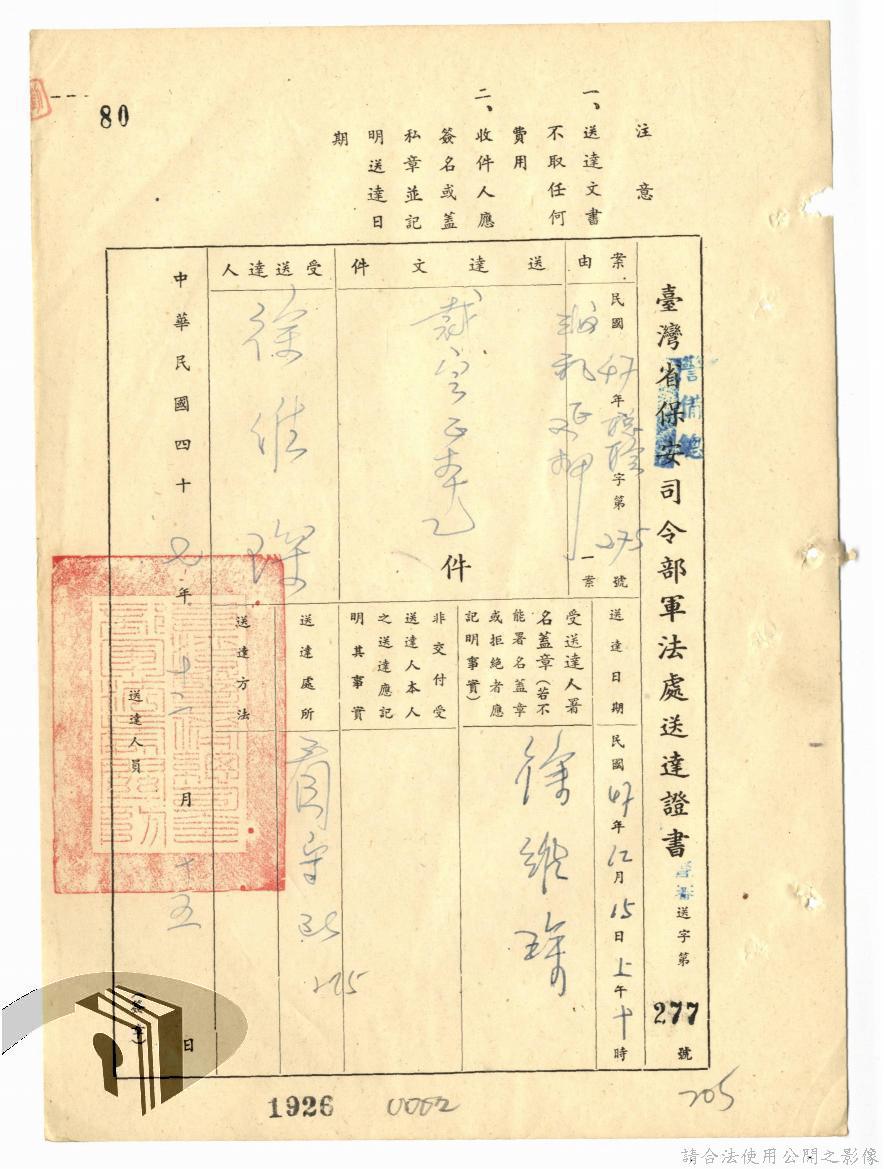 80
注意
一、送達文書
不取任何
費用
二、收件人應
簽名或蓋
私章並記
明送達日
期
臺灣省保安司令部軍法處送達證書
警備總
送字第277號
案由
民國47年 字第275號
一案
送達文件
裁定正本乙
件
受送達人
徐維琛
送達日期
民國47年12月15日上午十時
受送達人署
名蓋章(若不
能署名蓋章
或拒絕者應
記明事實)
徐維琛
非交付受
送達人本人
之送達應記
明其事實
送達處所
看守所
送達方法
中華民國四十七年十二月十五日
送達人員
(簽章)
1926
0002
205
請合法使用公開之影像